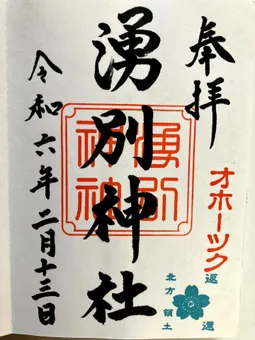 奉拝
オホーツク
返還
北方領土
湧別神社
令和六年二月十三日